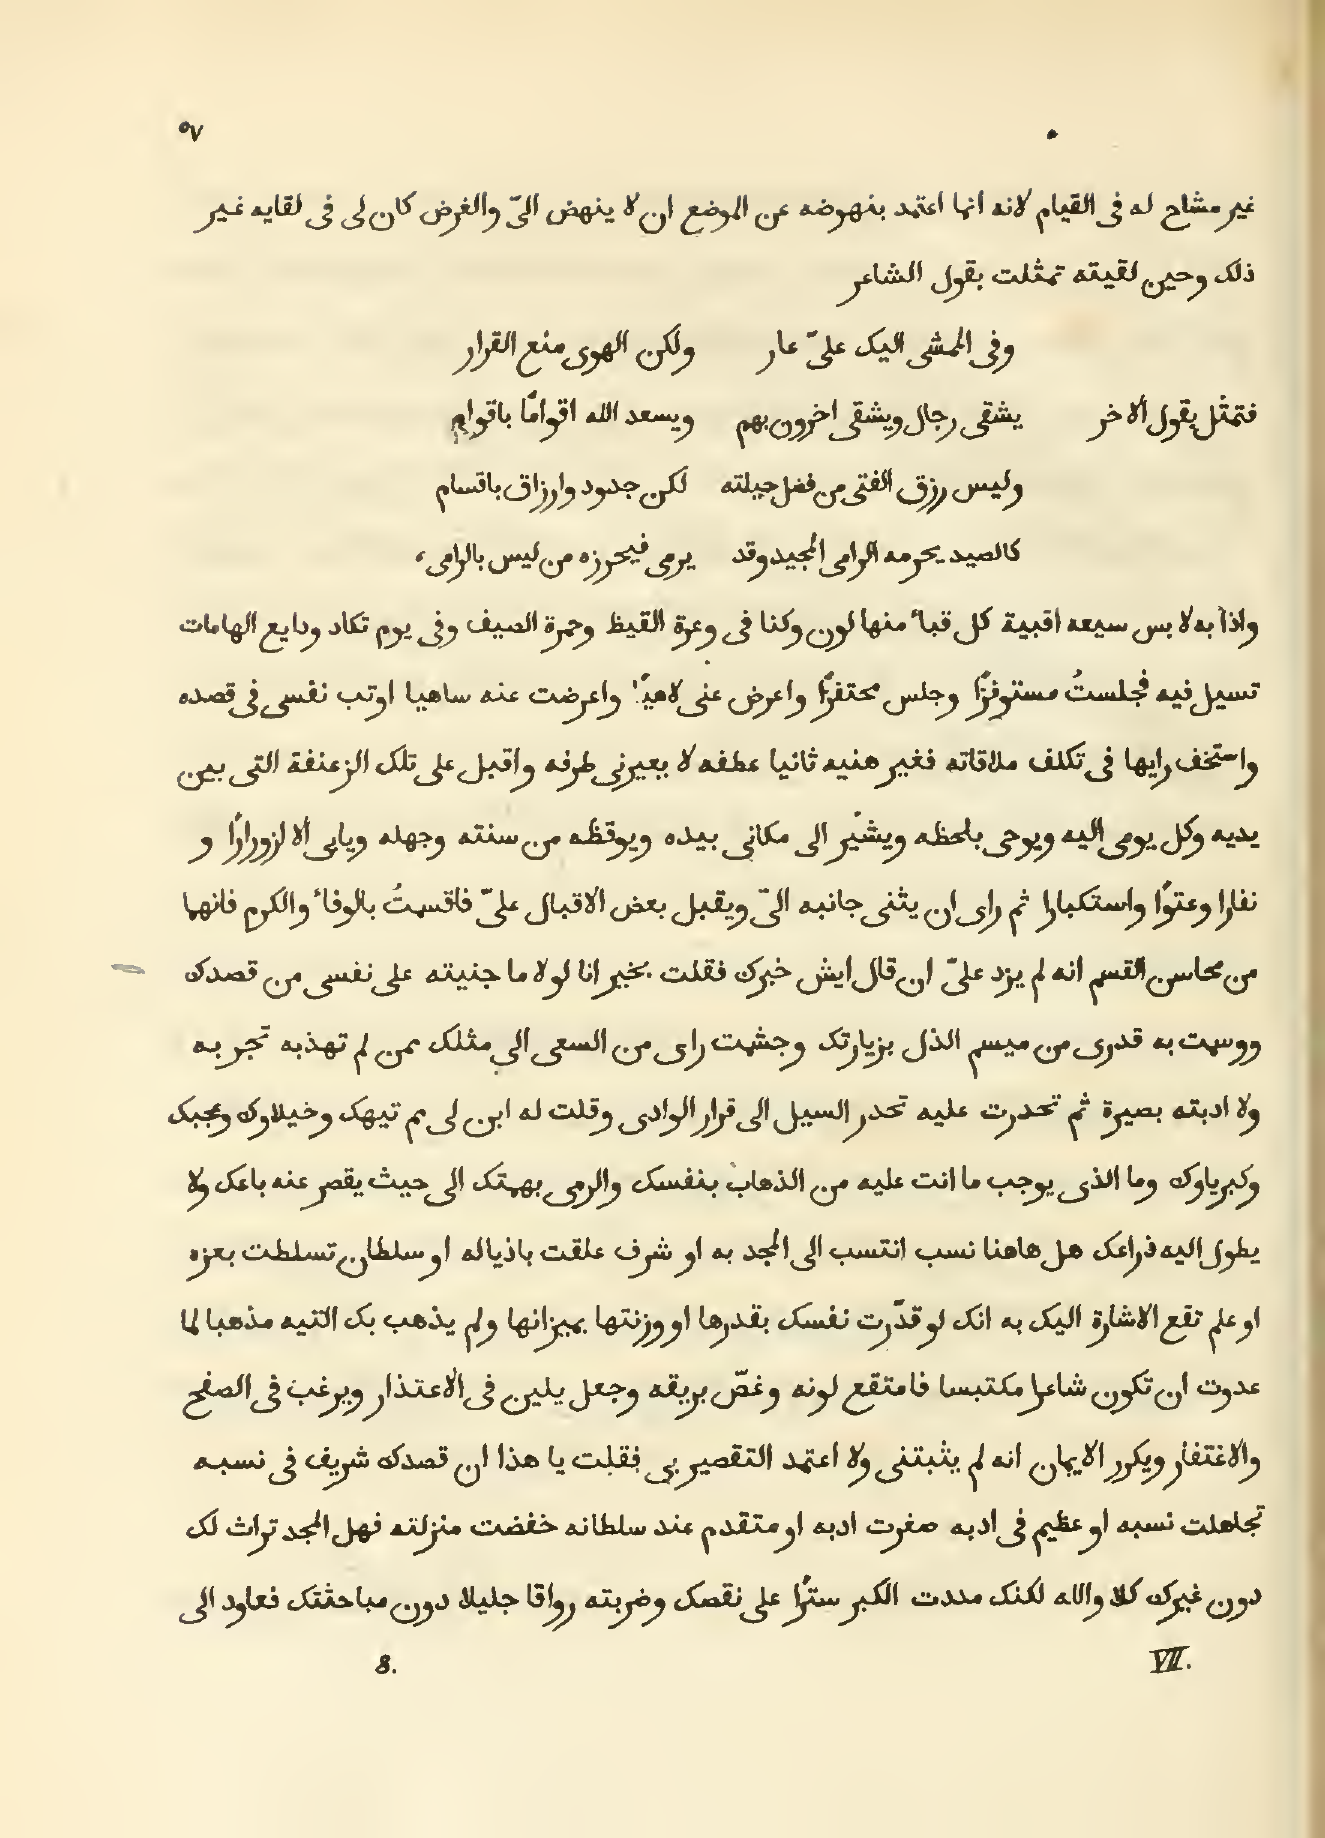 ٥٧
غير مشاح له فى القيام لانه انما اعتمد بنهوضه عن الموضع ان لا ينهض الىّ والغرض كان لى فى لقايه غير
ذلك وحين لقيته تمثلت بقول الشاعر
وفى الممشى اليك علىّ عار ولكن الهوى منع القرار
فتمثل بقول الاخر يشقى رجال ويشقى اخرون بهم ويسعد الله اقوامًا باقوام
وليس رزق الفتى من فضل حيلته لكن جدود وارزاق باقسام
كالصيد يحرمه الرامى المجيد وقد يرمى فيحرزه من ليس بالرامى،
واذا به لابس سبعه اقبية كل قباء منها لون وكنا فى وعرة القيظ وحمرة الصيف وفى يوم تكاد ودايع الهامات
تسيل فيه فجلستُ مستوفزًا وجلس محتفزًا واعرض عنى لاهيًا واعرضت عنه ساهيا اوتب نفسى فى قصده
واستخف رايها فى تكلف ملاقاته فغير هنيه ثانيا عطفه لا يعيرنى طرفه واقبل على تلك الزعنفة التى بين
يديه وكل يومى اليه ويوحى بلحظه ويشير الى مكانى بيده ويوقظه من سنته وجهله ويابى الا ازورارًا و
نفارا وعتوًا واستكبارا ثم راى ان يثنى جانبه الىّ ويقبل بعض الاقبال علىّ فاقسمتُ بالوفاء والكرم فانهما
من محاسن القسم انه لم يزد علىّ ان قال ايش خبرك فقلت بخير انا لولا ما جنيته على نفسى من قصدك
ووسمت به قدرى من ميسم الذل بزيارتك وجشمت راى من السعى الى مثلك ممن لم تهذبه تجربه
ولا ادبته بصيرة ثم تحدرت عليه تحدر السيل الى قرار الوادى وقلت له ابن لى مم تيهك وخيلاوك وعجبك
وكبرياوك وما الذى يوجب ما انت عليه من الذهاب بنفسك والرمى بهمتك الى حيث يقصر عنه باعك ولا
يطول اليه ذراعك هل هاهنا نسب انتسب الى المجد به او شرف علقت باذياله او سلطان تسلطت بعزه
او علم تقع الاشارة اليك به انك لو قدّرت نفسك بقدرها او وزنتها بميزانها ولم يذهب بك التيه مذهبا لما
عدوت ان تكون شاعرا مكتبسا فامتقع لونه وغصّ بريقه وجعل يلين فى الاعتذار ويرغب فى الصفح
والاغتفار ويكرر الايمان انه لم يثبتنى ولا اعتمد التقصير بى فقلت يا هذا ان قصدك شريف فى نسبه
تجاهلت نسبه او عظيم فى ادبه صغرت ادبه او متقدم عند سلطانه خفضت منزلته فهل المجد تراث لك
دون غيرك كلا والله لكنك مددت الكبر سترًا على نقصك وضربته رواقا جليلا دون مباحثتك فعاود الى
VII. 8.